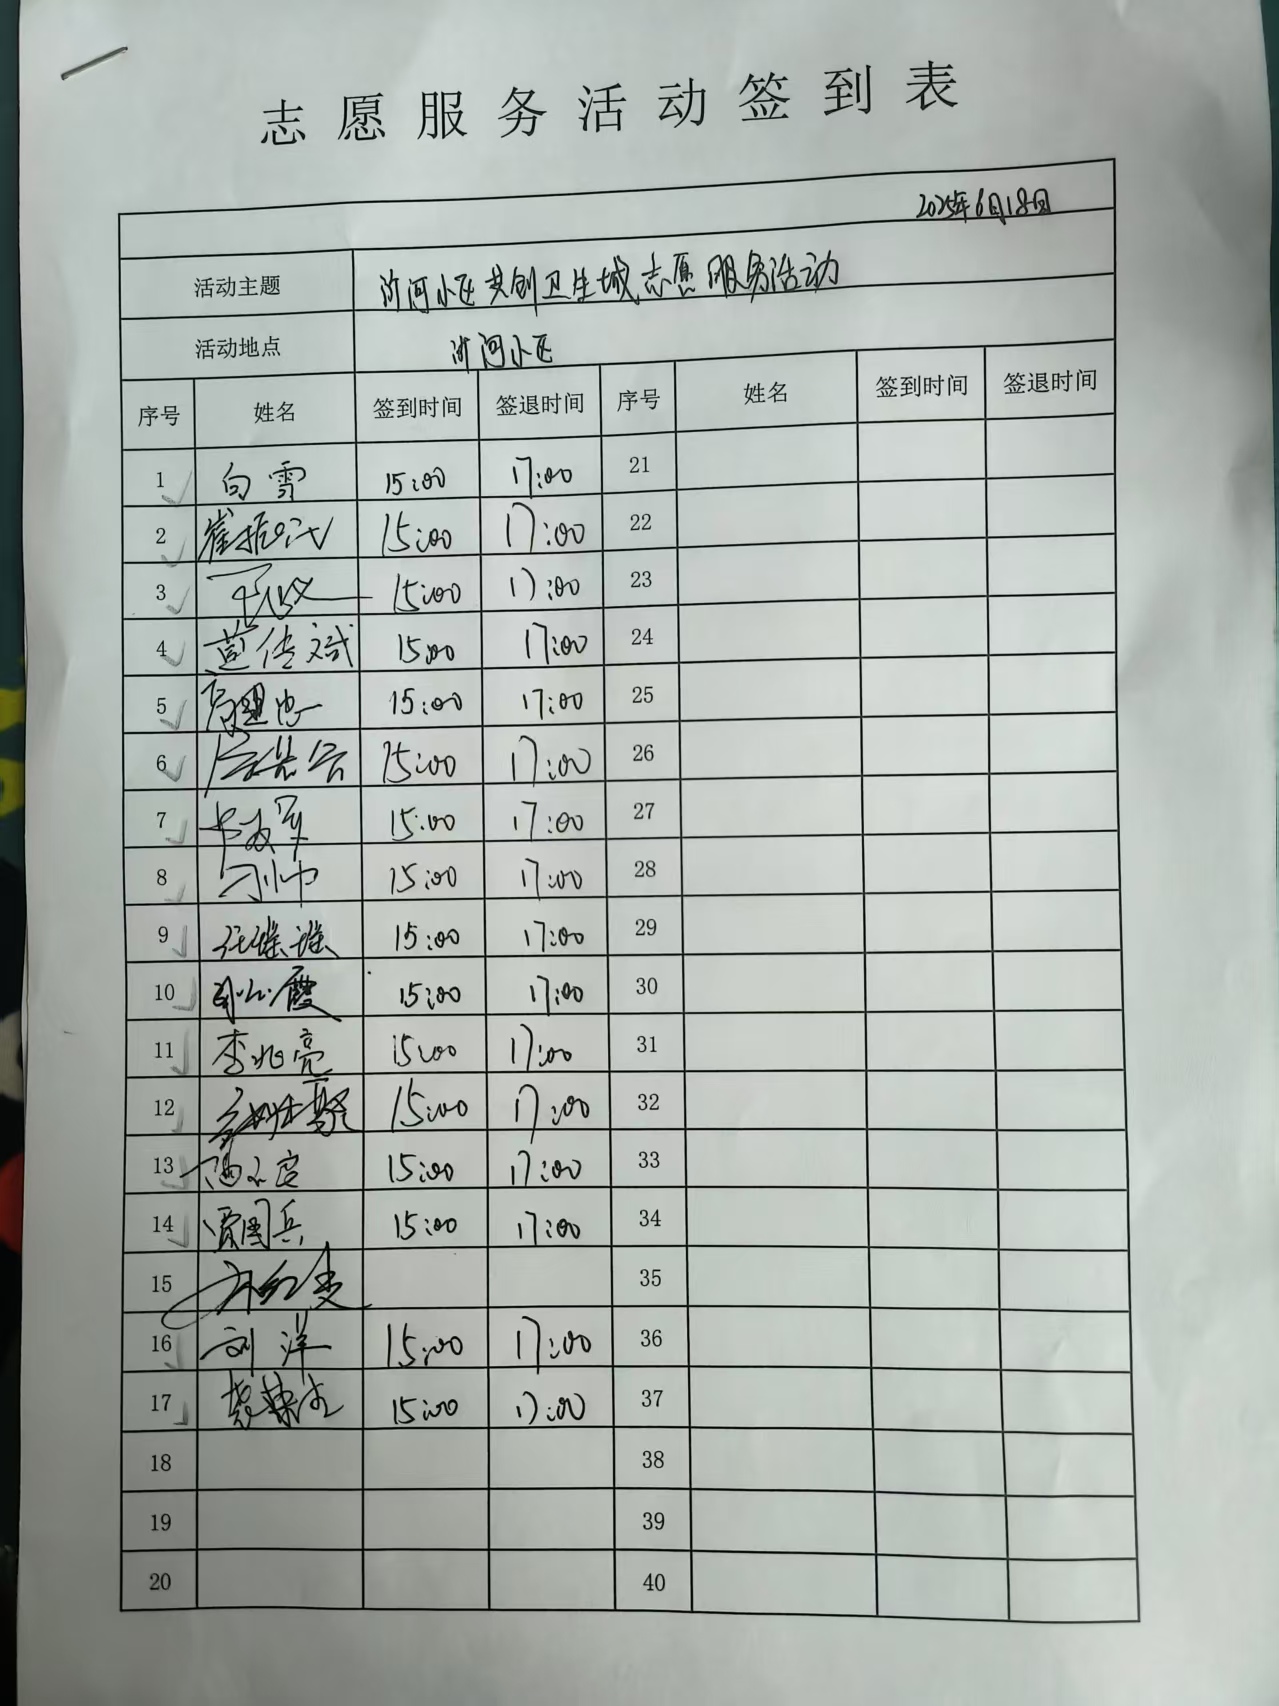 志愿服务活动签到表
2025年6月18日
活动主题 沂河小区共创卫生城志愿服务活动
活动地点 沂河小区
序号 姓名 签到时间 签退时间 序号 姓名 签到时间 签退时间
1 白雪 15:00 17:00 21
2 15:00 17:00 22
3 15:00 17:00 23
4 15:00 17:00 24
5 15:00 17:00 25
6 15:00 17:00 26
7 15:00 17:00 27
8 15:00 17:00 28
9 15:00 17:00 29
10 15:00 17:00 30
11 李兆亮 15:00 17:00 31
12 15:00 17:00 32
13 15:00 17:00 33
14 贾国兵 15:00 17:00 34
15 35
16 刘洋 15:00 17:00 36
17 15:00 17:00 37
18 38
19 39
20 40